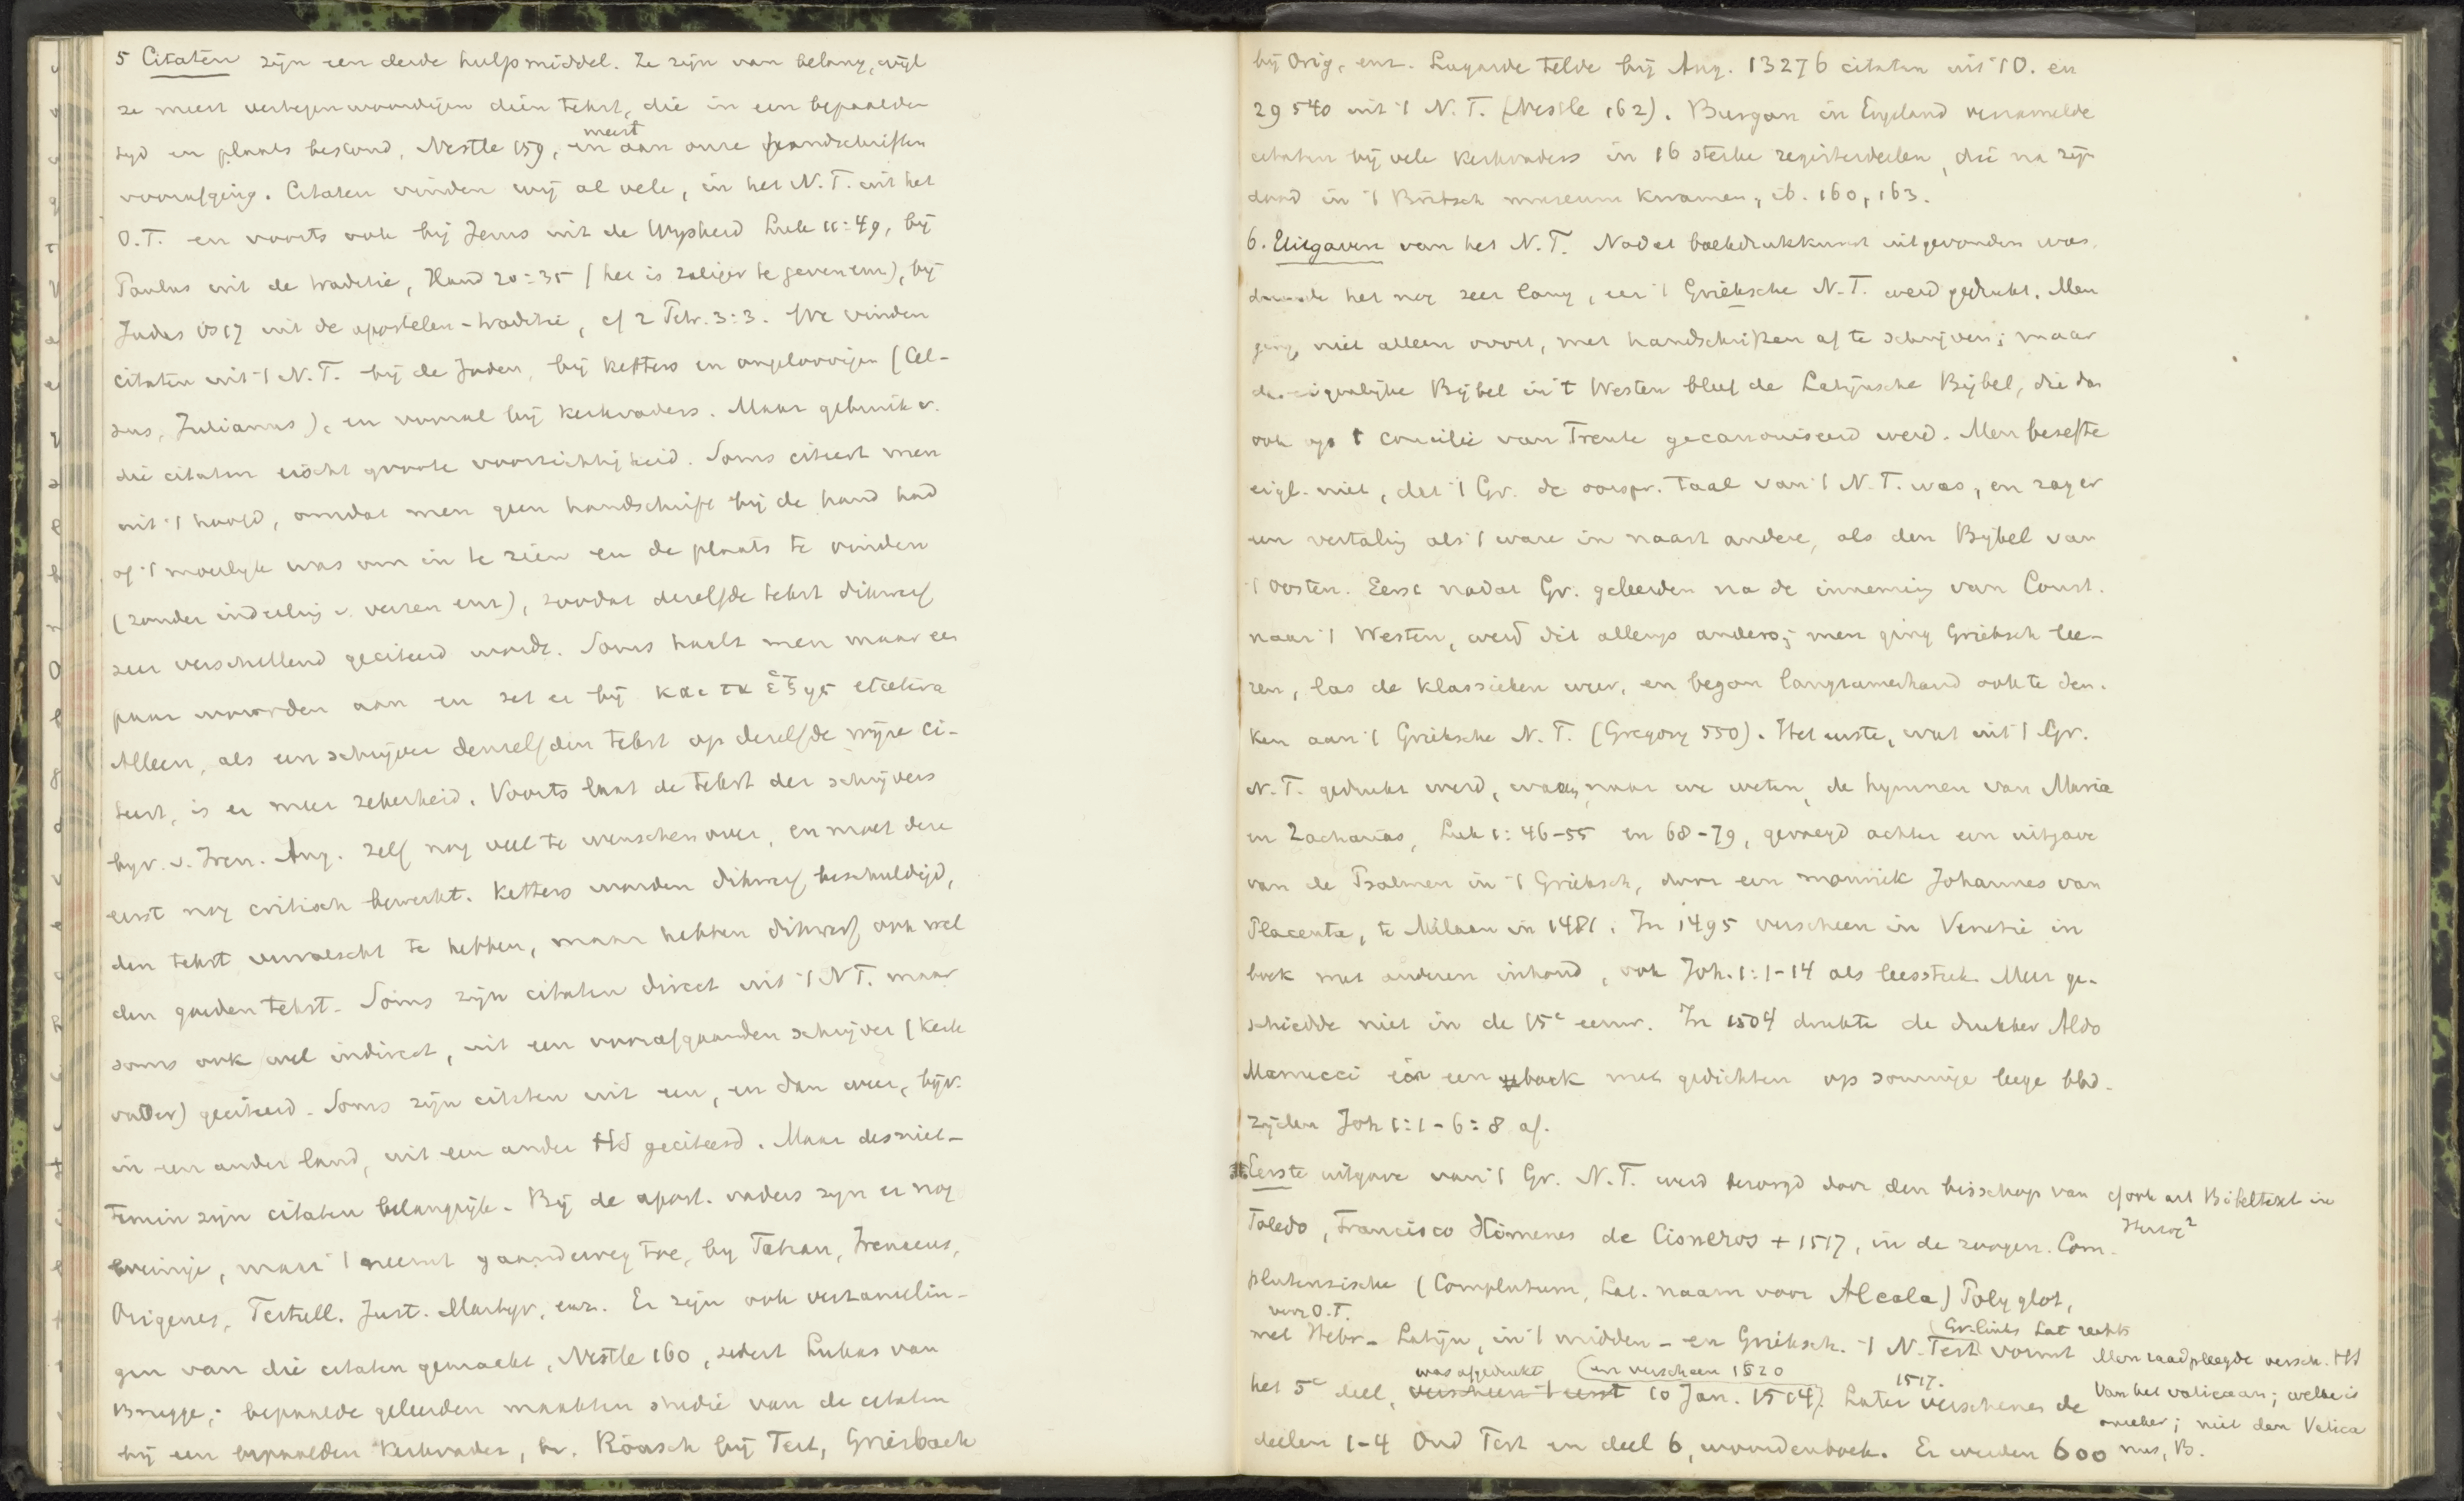 5 Citaten zijn een derde hulpmiddel. Ze zijn van belang, wijl
ze meest vertegenwoordigen dien tekst, die in een bepaalden
tijd en plaats bestond, Nestle 159, en meest aan onze handschriften
voorafging. Citaten vinden wij al vele, in het N.T. uit het
O.T. en voorts ook bij Jezus uit de Wijsheid Luk 11:49, bij
Paulus uit de traditie, Hand 20:35 (het is zaliger te geven enz), bij
Judas vs 17 uit de apostelen-traditie, cf 2 Petr. 3:3. We vinden
citaten uit 't N.T. bij de Joden, bij ketters en ongeloovigen (Cel-
sus, Julianus), en vooral bij kerkvaders. Maar gebruik v.
die citaten eischt groote voorzichtigheid. Soms citeert men
uit 't hoofd, omdat men geen handschrift bij de hand had
of 't moeilijk was om in te zien en de plaats te vinden
(zonder indeeling v. verzen enz), zoodat dezelfde tekst dikwerf
zeer verschillend geciteerd wordt. Soms haalt men maar een
paar woorden aan en zet er bij και τα ἑξης etcetera
Alleen, als een schrijver denzelfden tekst op dezelfde wijze ci-
teert, is er meer zekerheid. Voorts laat de tekst der schrijvers
bijv. v. Iren. Aug. zelf nog veel te wenschen over, en moet deze
eerst nog critisch bewerkt. Ketters worden dikwerf beschuldigd,
den tekst vervalscht te hebben, maar hebben dikwerf ook wel
den goeden tekst. Soms zijn citaten direct uit 't NT. maar
soms ook wel indirect, uit een voorafgaanden schrijver (kerk
vader) geciteerd. Soms zijn citaten uit een, en dan weer, bijv.
in een ander land, uit een ander HS geciteerd. Maar desniet-
temin zijn citaten belangrijk. Bij de apost. vaders zijn er nog
weinige, maar 't neemt gaandeweg toe, bij Tatian, Irenaeus,
Origenes, Tertull. Just. Martyr, enz. Er zijn ook verzamelin-
gen van die citaten gemaakt, Nestle 160, sedert Lukas van
Brugge; bepaalde geleerden maakten studie van de citaten
bij een bepaalden kerkvader, bv. Rönsch bij Tert, Griesbach
bij Orig, enz. Lagarde telde bij Aug. 13276 citaten uit 't O. en
29540 uit 't N.T. (Nestle 162). Burgon in Engeland verzamelde
citaten bij vele kerkvaders in 16 sterke registerdeelen, die na zijn
dood in 't Britsch museum kwamen, ib. 160, 163.
6. Uitgaven van het N.T. Nadat boekdrukkunst uitgevonden was,
duurde het nog zeer lang, eer 't Grieksche N.T. werd gedrukt. Men
ging niet alleen voort, met handschriften af te schrijven; maar
de eigenlijke Bijbel in 't Westen bleef de Latijnsche Bijbel, die dan
ook op 't concilie van Trente gecanoniseerd werd. Men besefte
eigl. niet, dat 't Gr. de oorspr. taal van 't N.T. was, en zag er
een vertaling als 't ware in naast andere, als den Bijbel van
't Oosten. Eerst nadat Gr. geleerden na de inneming van Const.
naar 't Westen, werd dit allengs anders; men ging Grieksch lee-
ren, las de klassieken weer, en begon langzamerhand ook te den-
ken aan 't Grieksche N.T. (Gregory 550). Het eerste, wat uit 't Gr.
N.T. gedrukt werd, waren, naar we weten, de hymnen van Maria
en Zacharias, Luk 1:46-55 en 68-79, gevoegd achter een uitgave
van de Psalmen in 't Grieksch, door een monnik Johannes van
Placenta, te Milaan in 1481. In 1495 verscheen in Venetië in
boek met anderen inhoud, ook Joh. 1:1-14 als leesstuk. Meer ge-
schiedde niet in de 15e eeuw. In 1504 drukte de drukker Aldo
Manucci in een boek met gedichten op sommige leege blad-
zijden Joh 1:1-6:8 af.
Eerste uitgave van 't Gr. N.T. werd bezorgd door den bisschop van
cf ook art Bibeltext in
Herzog²
Toledo, Francisco Ximenes de Cisneros + 1517, in de zoogen. Com-
plutensische (Complutum, Lat. naam voor Alcala) Polyglot,
voor O.T.
met Hebr. - Latijn, in 't midden - en Grieksch. 't N. Test vormt
(Gr. links Lat rechts
het 5e deel, verscheen 't eerst 10 Jan. 1514). Later verschenen de
was afgedrukt (en verscheen 1520
1517.
deelen 1-4 Oud Test en deel 6, woordenboek. Er werden 600
Men raadpleegde versch. HS
van het vaticaan; welke is
onzeker; niet den Vatica
nus, B.